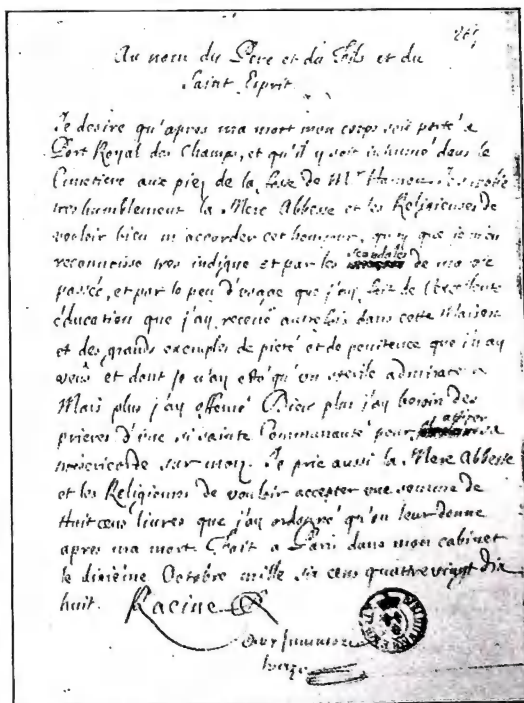 Au nom du Pere et du Fils et du
Saint Esprit.
Je desire qu'apres ma mort mon corps soit porté a
Port Royal des Champs, et qu'il y soit inhumé dans le
Cimetiere aux piez de la fosse de Mr Hamon. Je supplie
tres humblement la Mere Abbesse et les Religieuses de
vouloir bien m'accorder cet honneur, quoy que je m'en
reconnoisse tres indigne et par les scandales de ma vie
passée, et par le peu d'usage que j'ay fait de l'excellente
éducation que j'ay receuë autrefois dans cette Maison
et des grands exemples de pieté et de penitence que j'y ay
veus et dont je n'ay esté qu'un sterile admirateur.
Mais plus j'ay offensé Dieu plus j'ay besoin des
prieres d'une si sainte Communauté pour attirer sa
misericorde sur moy. Je prie aussi la Mere Abbesse
et les Religieuses de vouloir accepter une somme de
Huit cens livres que j'ay ordonné qu'on leur donne
apres ma mort. Fait a Paris dans mon cabinet
le dixiéme Octobre mille six cens quatre vingt dix
huit. Racine